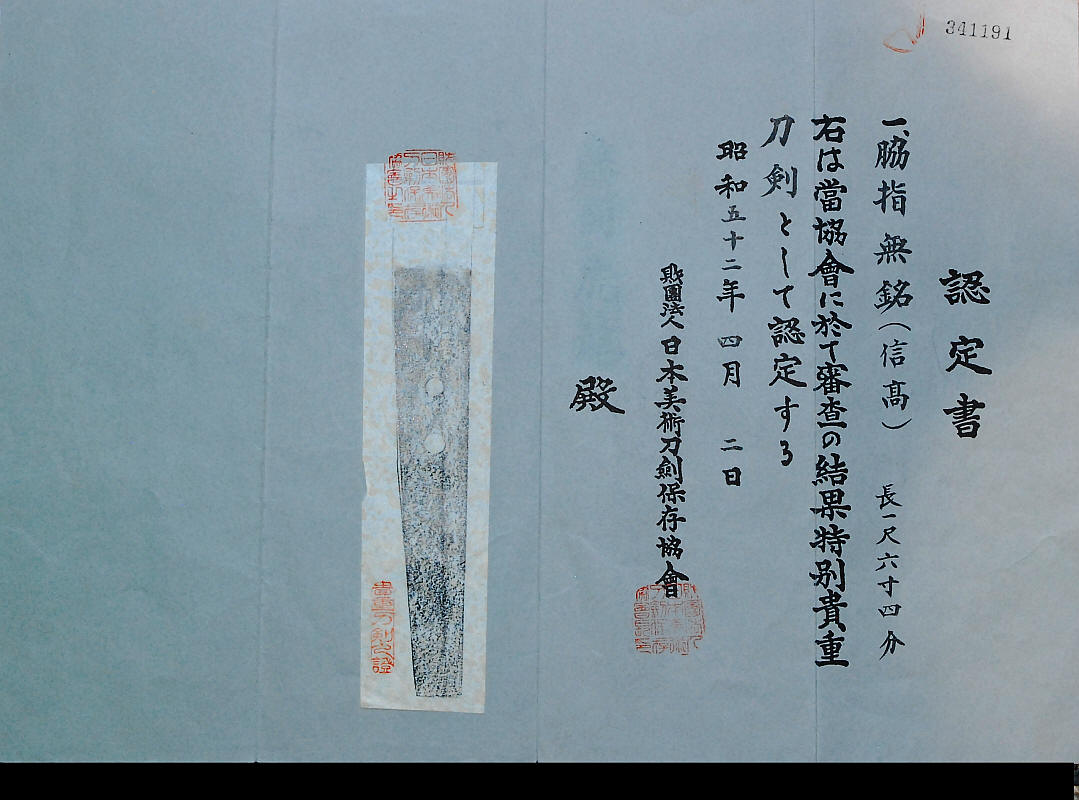 341191
認定書
一、脇指 無銘(信高) 長一尺六寸四分
右は當協會に於て審査の結果特別貴重
刀剣として認定する
昭和五十二年 四月 二日
財團法人日本美術刀劍保存協會
殿